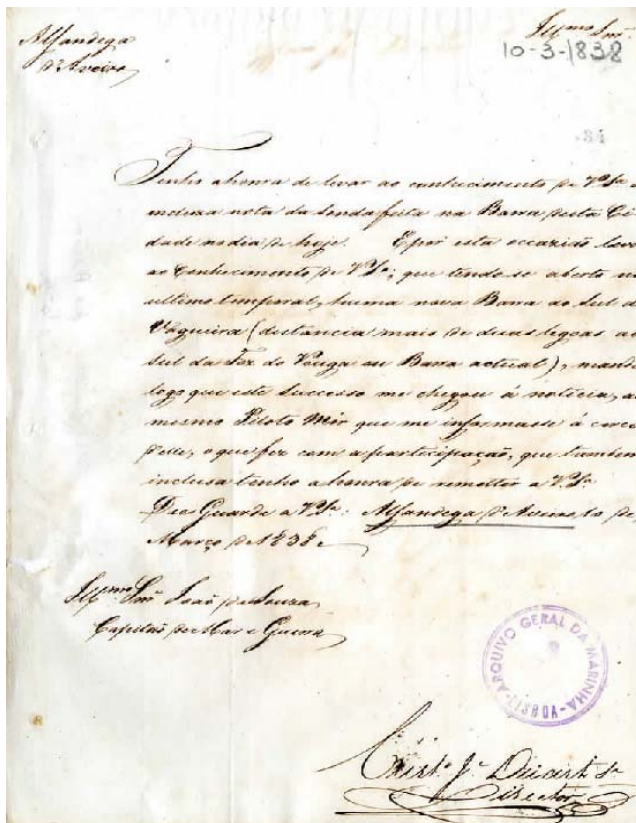 Alfandega
d'Aveiro
Illmo Snr.
10-3-1838
34
Tenho a honra de levar ao conhecimento de V.Sa. a
incluza nota da sonda feita na Barra desta Ci
dade no dia de hoje. E por esta occazião levo
ao Conhecimento de V.Sa., que tendo-se aberto no
ultimo temporal, huma nova Barra ao Sul da
Vagueira (distancia mais de duas legoas ao
Sul da Foz do Vouga ou Barra actual), mandei
logo que este successo me chegou á noticia, ao
mesmo Piloto Mór que me informasse á cerca
delle, o que fez com a participação, que tambem
incluza tenho a honra de remetter a V.Sa.
Ds. Guarde a V.Sa. Alfandega d'Aveiro 10 de
Março de 1838.
Illmo Snr. João de Souza
Capitão de Mar e Guerra
ARQUIVO GERAL DA MARINHA
-LISBOA-
Director